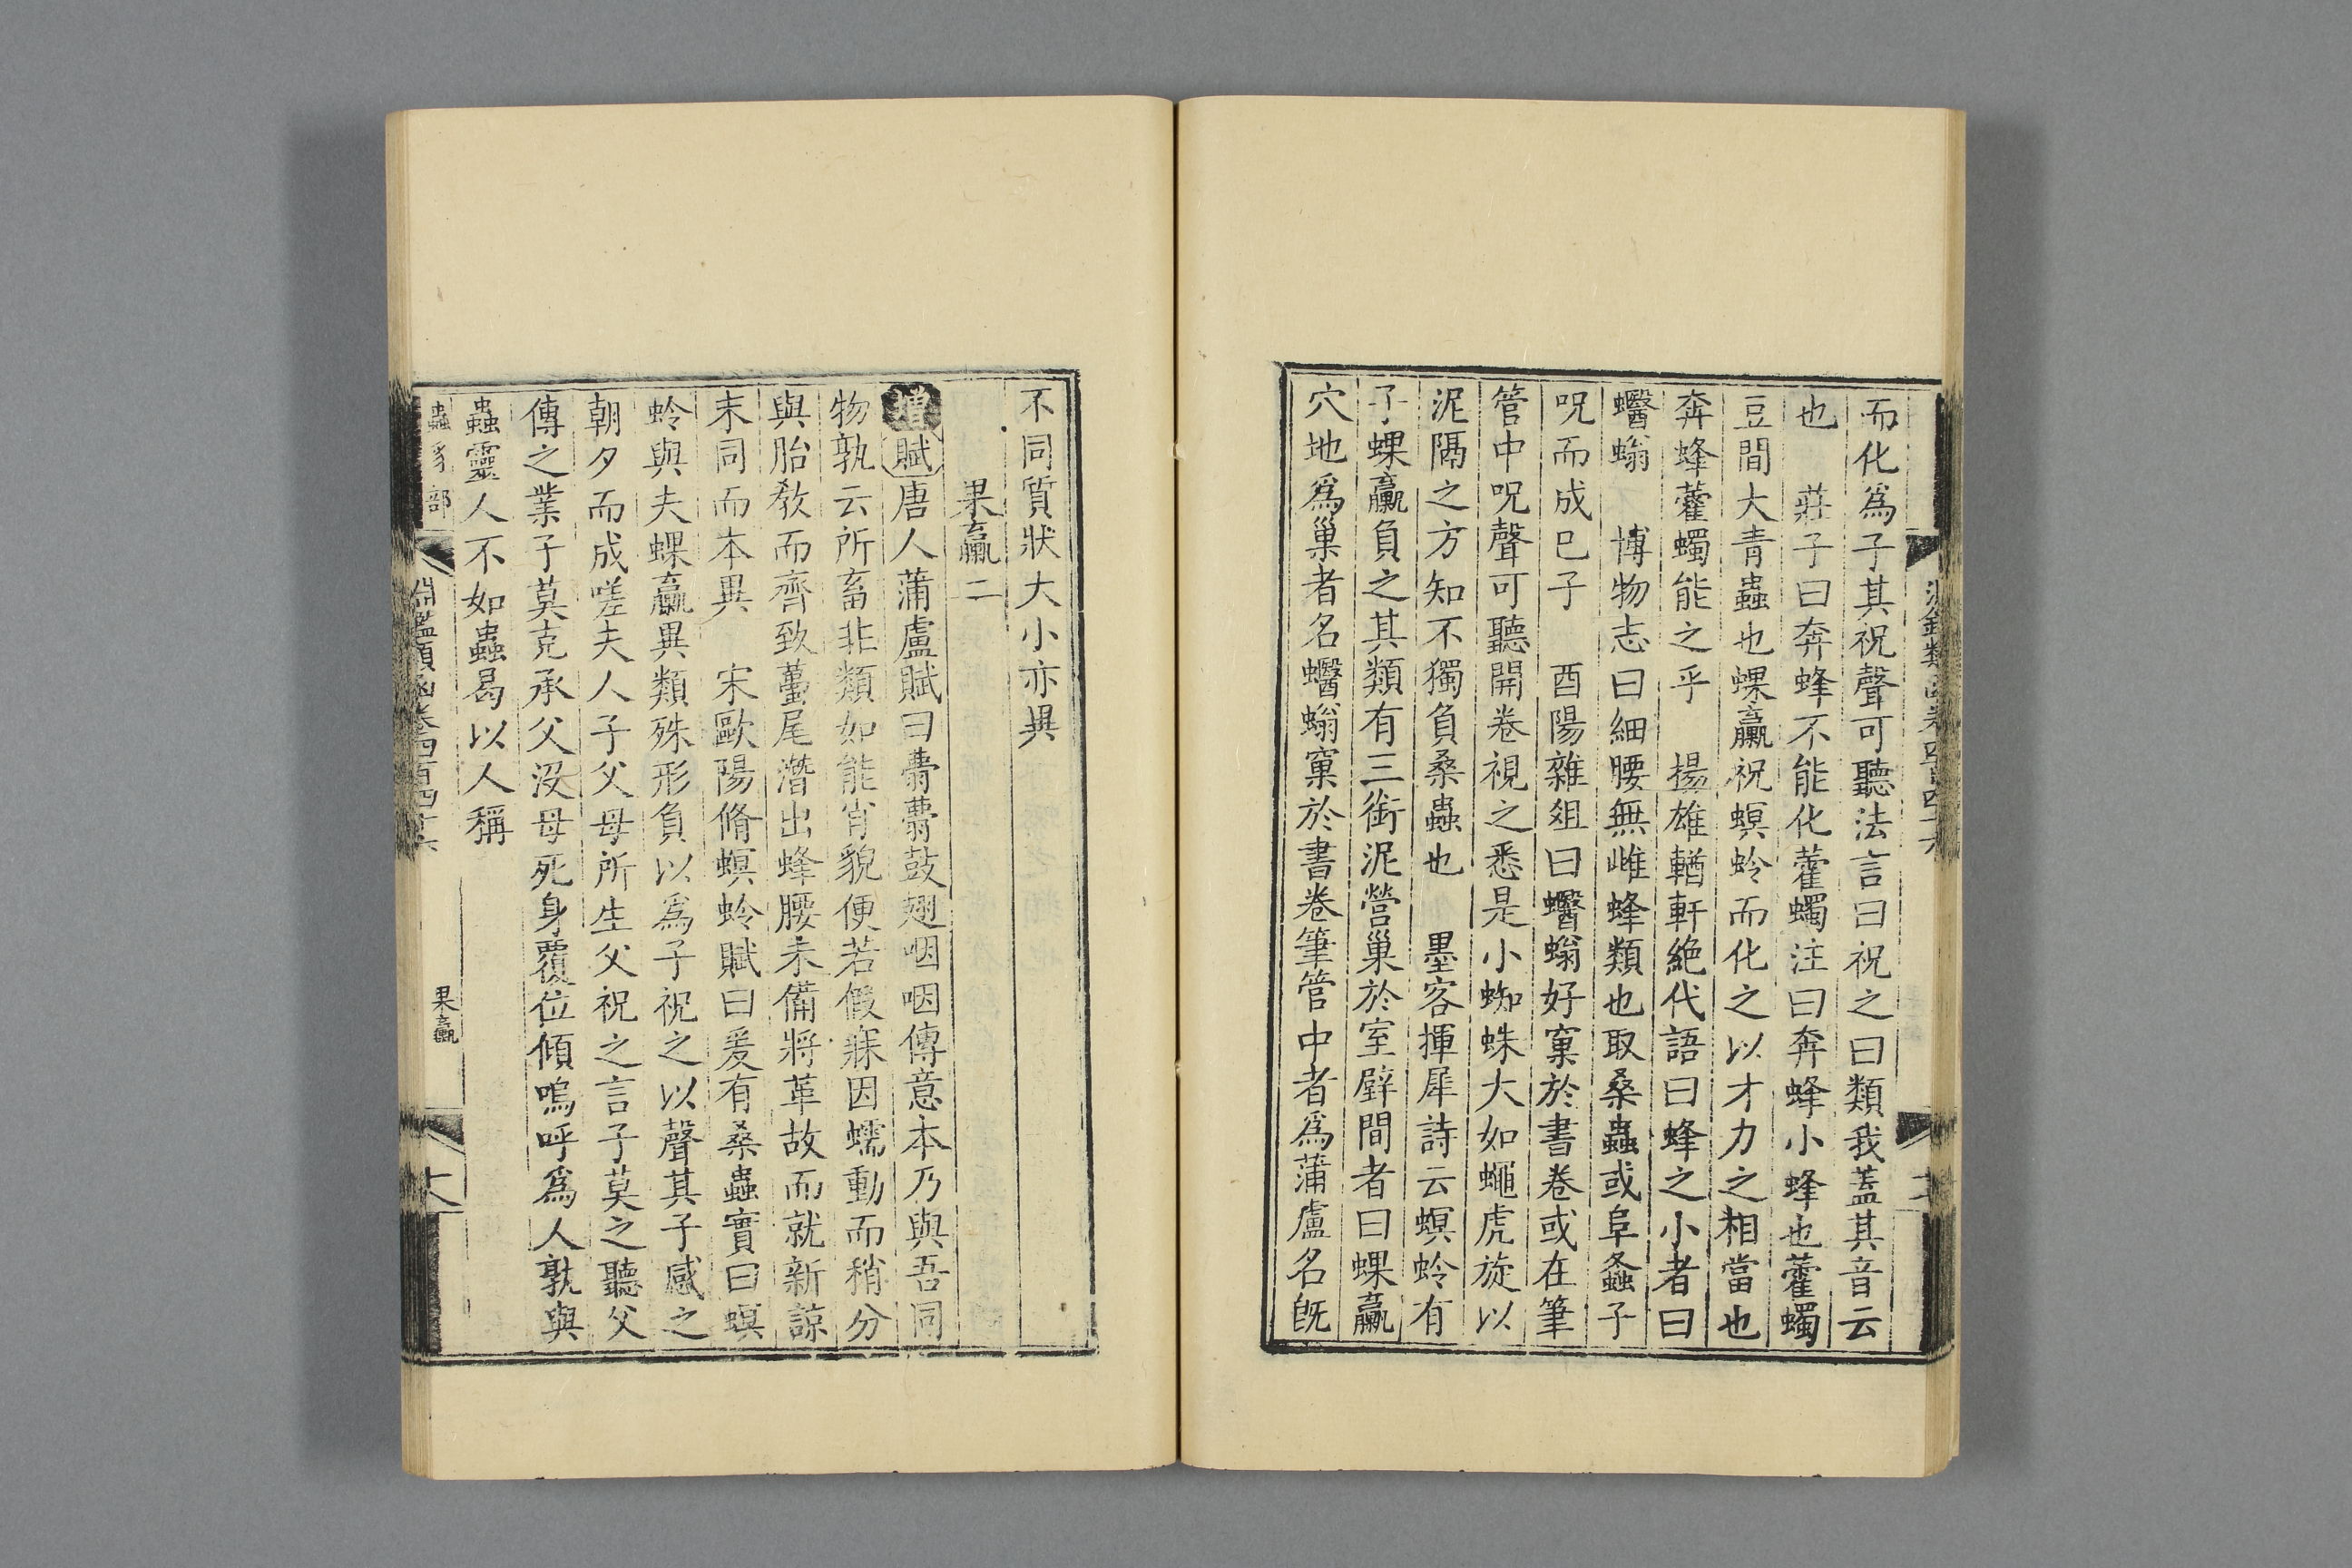 而化爲子其祝聲可聽法言曰祝之曰類我蓋其音云
也　莊子曰奔蜂不能化藿蠋注曰奔蜂小蜂也藿蠋
豆間大青蟲也蜾蠃祝螟蛉而化之以才力之相當也
奔蜂藿蠋能之乎　揚雄輶軒絶代語曰蜂之小者曰
蠮螉　博物志曰細腰無雌蜂類也取桑蟲或阜螽子
呪而成已子　酉陽雜俎曰蠮螉好窠於書卷或在筆
管中呪聲可聽開卷視之悉是小蜘蛛大如蠅虎旋以
泥隔之方知不獨負桑蟲也　墨客揮犀詩云螟蛉有
子蜾蠃負之其類有三銜泥營巢於室壁間者曰蜾蠃
穴地爲巢者名蠮螉窠於書卷筆管中者爲蒲盧名旣
不同質狀大小亦異
果蠃二
增賦唐人蒲盧賦曰薨薨鼓翅咽咽傳意本乃與吾同
物孰云所畜非類如能肖貌便若假寐因蠕動而稍分
與胎教而齊致蠆尾潛出蜂腰未備將革故而就新諒
末同而本異　宋歐陽脩螟蛉賦曰爰有桑蟲實曰螟
蛉與夫蜾蠃異類殊形負以爲子祝之以聲其子感之
朝夕而成嗟夫人子父母所生父祝之言子莫之聽父
傳之業子莫克承父没母死身覆位傾嗚呼爲人孰與
蟲靈人不如蟲曷以人稱
蟲豸部
淵鑑類函卷四百四十六
果蠃